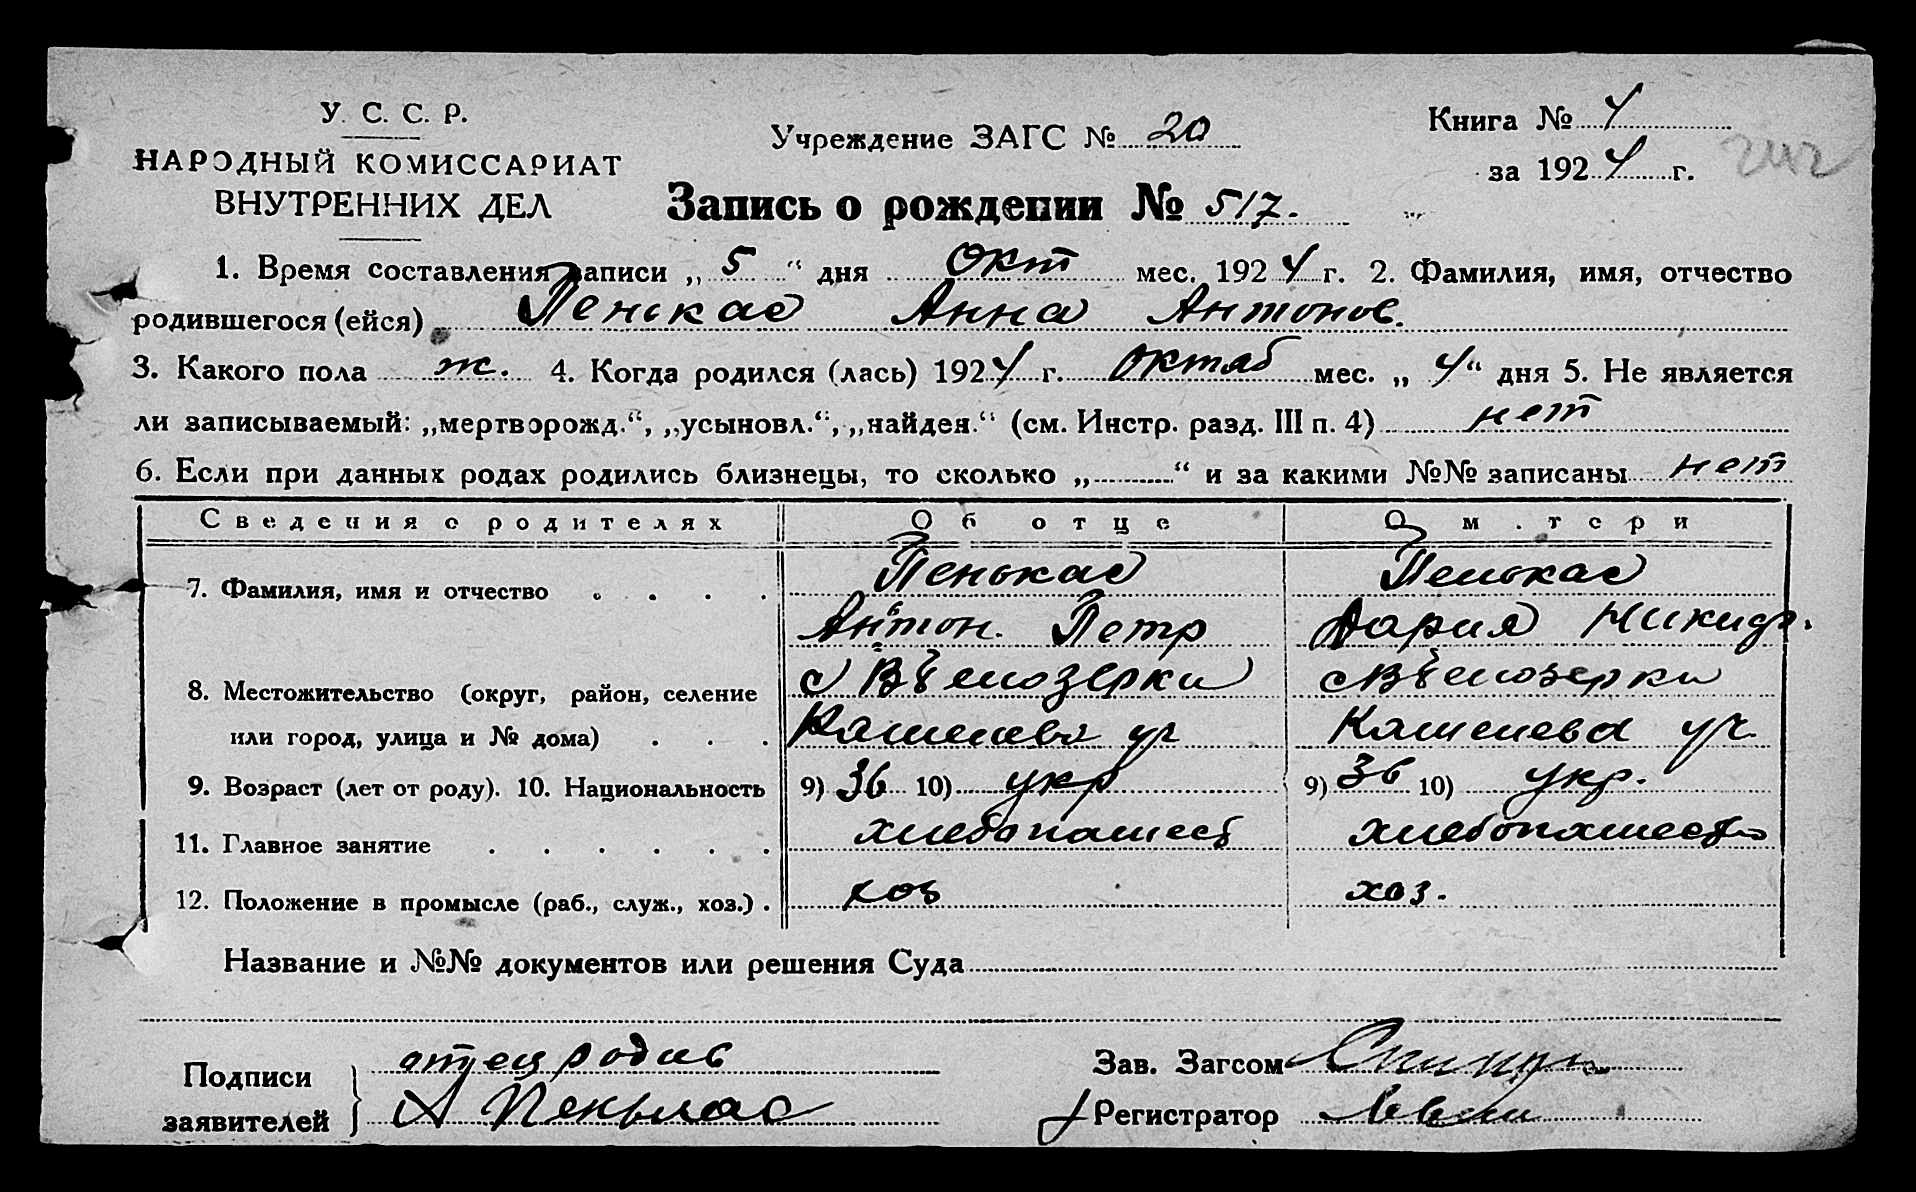 У. С. С. Р.
НАРОДНЫЙ КОМИССАРИАТ
ВНУТРЕННИХ ДЕЛ
Учреждение ЗАГС № 20
Книга № 4
за 1924 г.
Запись о рождении № 517.
1. Время составления записи „5“ дня окт мес. 1924 г. 2. Фамилия, имя, отчество
родившегося (ейся) Пенькас Анна Антонов.
3. Какого пола ж. 4. Когда родился (лась) 1924 г. октяб мес. „4“ дня 5. Не является
ли записываемый: „мертворожд.“, „усыновл.“, „найден.“ (см. Инстр. разд. III п. 4) нет
6. Если при данных родах родились близнецы, то сколько „..........“ и за какими №№ записаны нет
Сведения о родителях Об отце О матери
7. Фамилия, имя и отчество . . . . Пенькас Пенькас
Антон. Петр Дария Никид.
8. Местожительство (округ, район, селение с Вѣлозерки с Вѣлозерки
или город, улица и № дома) . . . Кашелева ул Кашелева ул.
9. Возраст (лет от роду). 10. Национальность 9) 36 10) укр 9) 36 10) укр.
11. Главное занятие . . . . . . хлебопашест хлебопашество
12. Положение в промысле (раб., служ., хоз.) . хоз хоз.
Название и №№ документов или решения Суда
Подписи отец родив Зав. Загсом
заявителей А Пенькас Регистратор